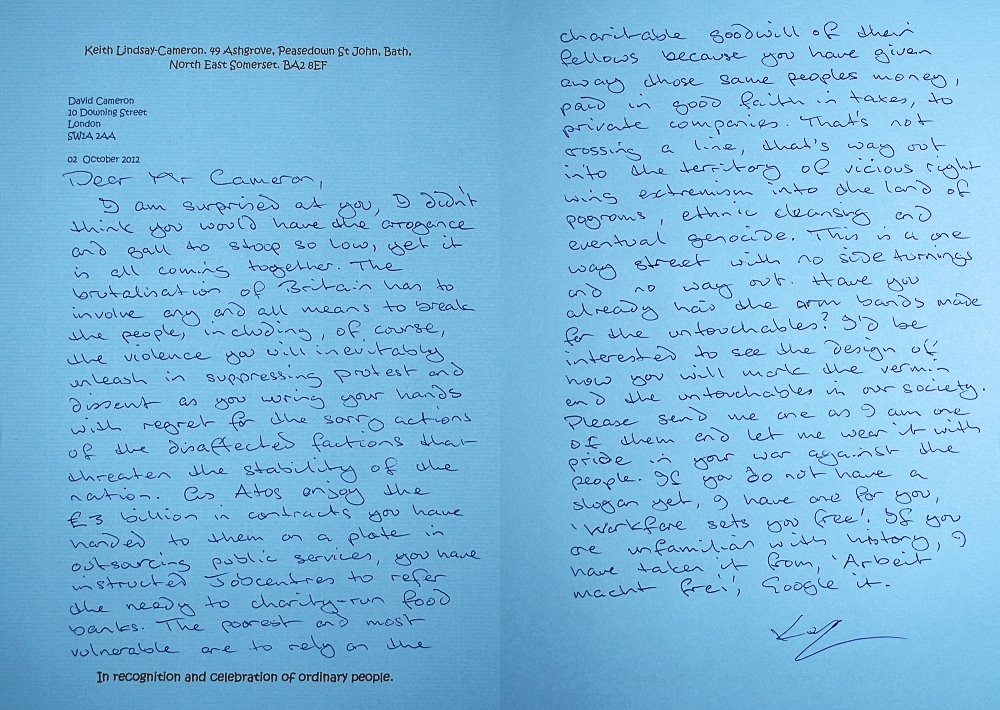 Keith Lindsay-Cameron. 49 Ashgrove, Peasedown St John, Bath,
North East Somerset. BA2 8EF
David Cameron
10 Downing Street
London
SW1A 2AA
02 October 2012
Dear Mr Cameron,
I am surprised at you, I didn't
think you would have the arrogance
and gall to stoop so low, yet it
is all coming together. The
brutalisation of Britain has to
involve any and all means to break
the people, including, of course,
the violence you will inevitably
unleash in suppressing protest and
dissent as you wring your hands
with regret for the sorry actions
of the disaffected factions that
threaten the stability of the
nation. As Atos enjoy the
£3 billion in contracts you have
handed to them on a plate in
outsourcing public services, you have
instructed Jobcentres to refer
the needy to charity-run food
banks. The poorest and most
vulnerable are to rely on the
In recognition and celebration of ordinary people.
charitable goodwill of their
fellows because you have given
away those same peoples money,
paid in good faith in taxes, to
private companies. That's not
crossing a line, that's way out
into the territory of vicious right
wing extremism into the land of
pogroms, ethnic cleansing and
eventual genocide. This is a one
way street with no side turnings
and no way out. Have you
already had the arm bands made
for the untouchables? I'd be
interested to see the design of
how you will mark the vermin
and the untouchables in our society.
Please send me one as I am one
of them and let me wear it with
pride in your war against the
people. If you do not have a
slogan yet, I have one for you,
'Workfare sets you free'. If you
are unfamiliar with history, I
have taken it from, 'Arbeit
macht frei', Google it.